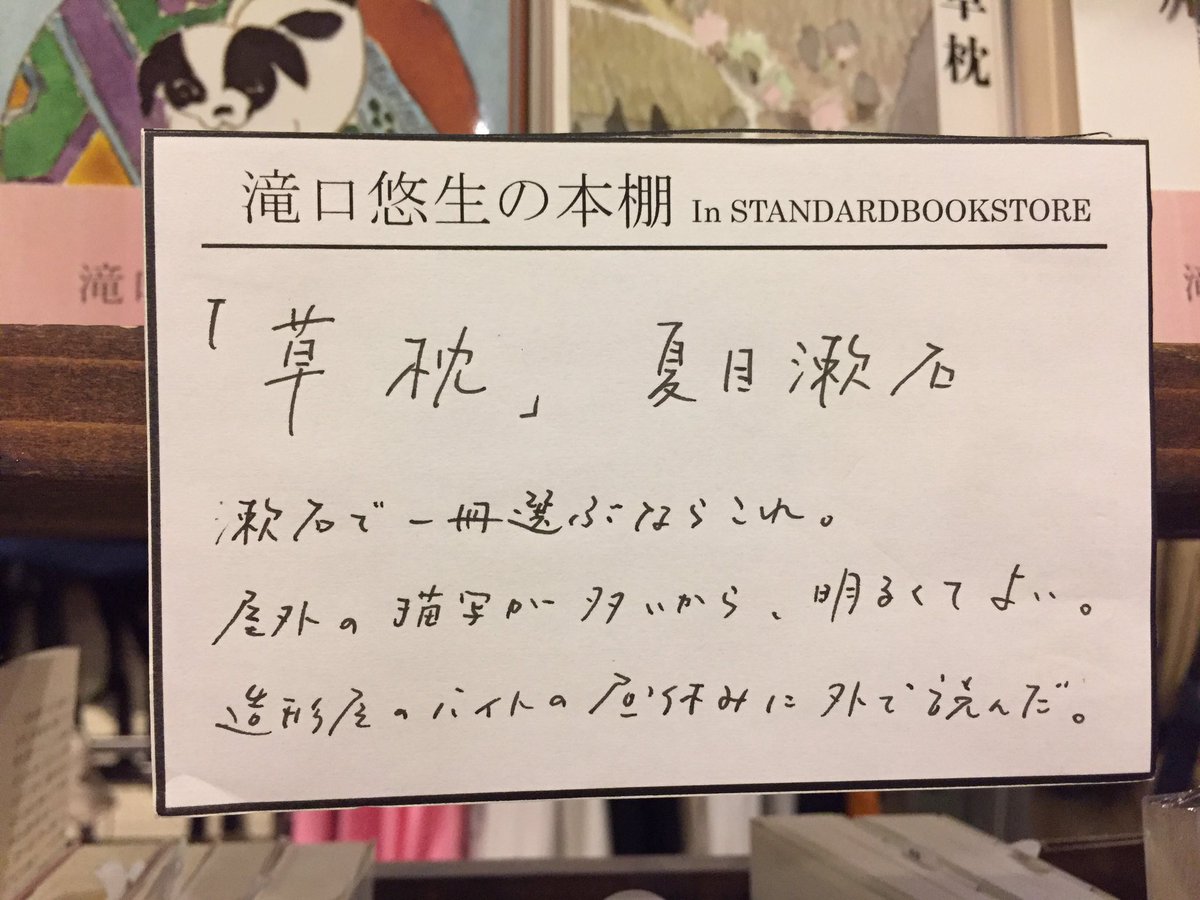 草枕
滝口悠生の本棚 In STANDARDBOOKSTORE
滝口
「草枕」 夏目漱石
漱石で一冊選ぶならこれ。
屋外の描写が多いから、明るくてよい。
造形屋のバイトの昼休みに外で読んだ。